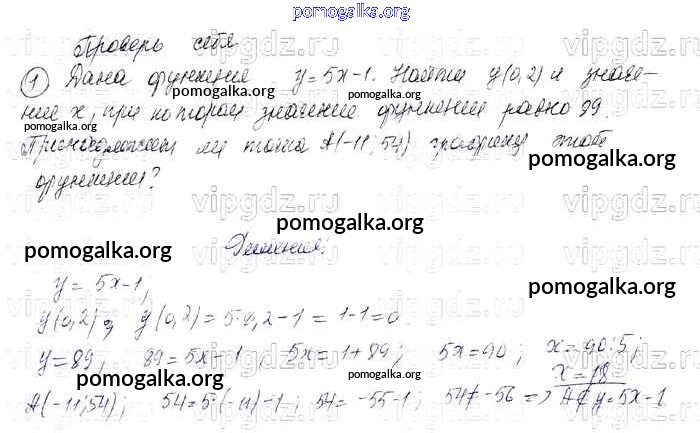 pomogalka.org
Проверь себя
1 Дана функция y=5x-1. Найти y(0,2) и значе-
ние x, при котором значение функции равно 89.
Принадлежит ли точка A(-11;54) графику этой
функции?
Решение:
y=5x-1,
y(0,2); y(0,2)=5·0,2-1=1-1=0
y=89, 89=5x-1, 5x=1+89; 5x=90; x=90:5;
x=18
A(-11;54); 54=5·(-11)-1; 54=-55-1; 54≠-56 => A∉y=5x-1
pomogalka.org
pomogalka.org
pomogalka.org
pomogalka.org
pomogalka.org
pomogalka.org
pomogalka.org
pomogalka.org
vipgdz.ru